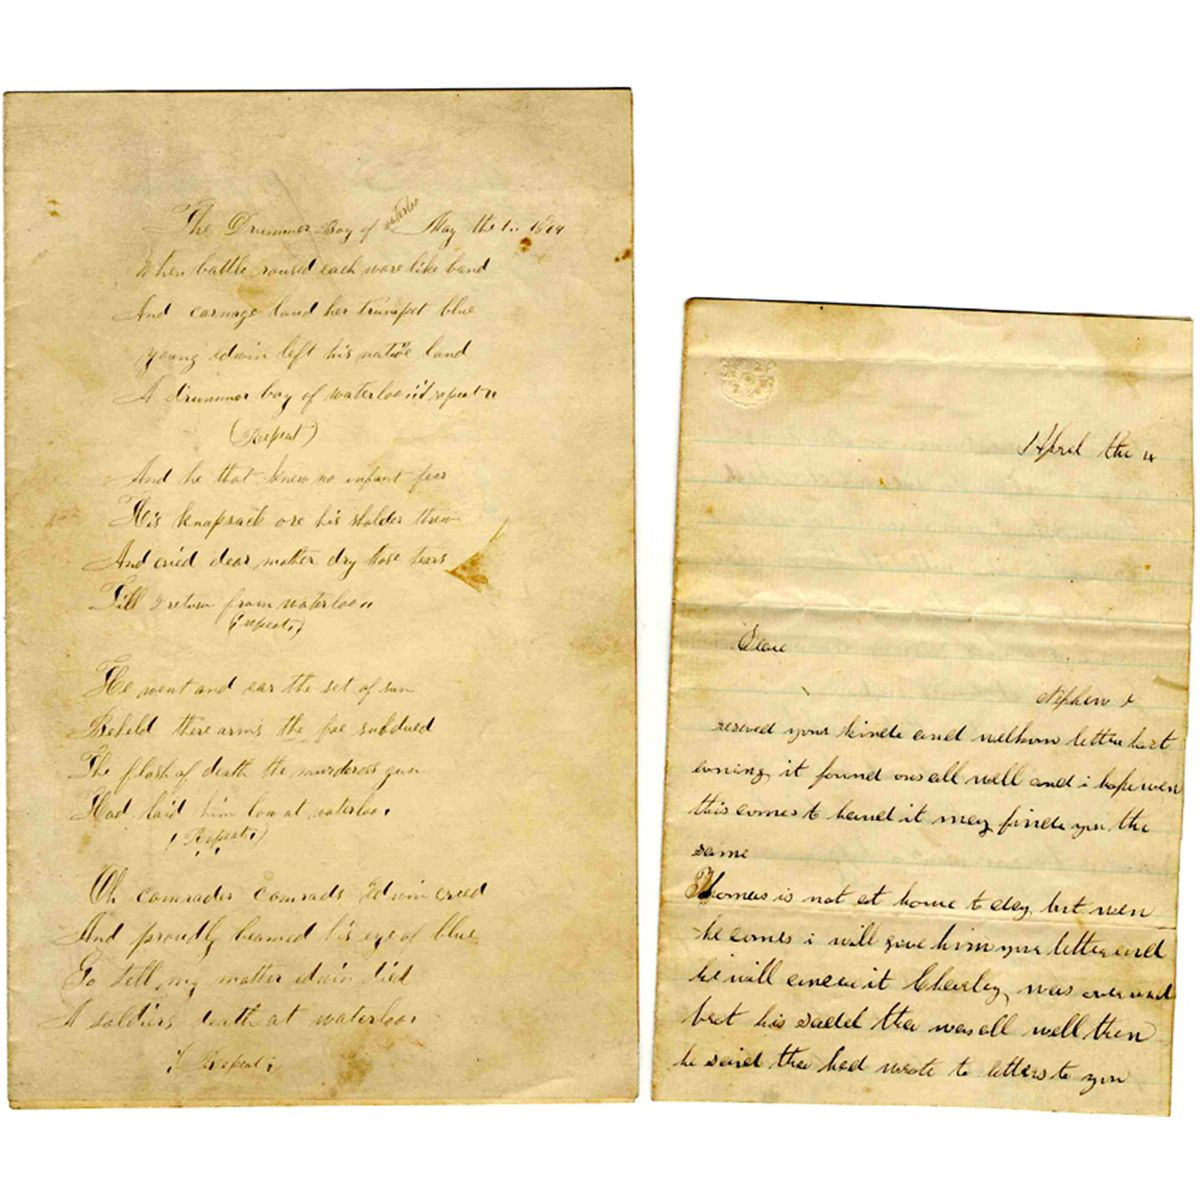 The Drummer Boy of waterloo May the 1.. 1864
When battle roused each ware like band
And carnage loud her trumpet blue
young edwin left his native land
A drummer boy of waterloo repeat
(Repeat)
And he that knew no infant fear
His knapsack ore his sholder threw
And cried dear mother dry those tears
Till I return from waterloo
(repeat)
He went and ear the set of sun
Beheld there arms the foe subdued
The flash of death the murderess gun
Had laid him low at waterloo
(Repeat)
Oh comrades comrads Edwin cried
And proudly beamed his eye of blue
Go tell my mother edwin died
A soldiers death at waterloo
(Repeat)
April the 4
Deare
Nephew I
reseved your kinde and welkom letter last
evning it found ous all well and i hope wen
this comes to hand it may finde you the
same
Thomas is not at home to day but wen
he comes i will give him your letter and
he will it Charley was over and
his the was all well then
he said the had wrote to letters to you